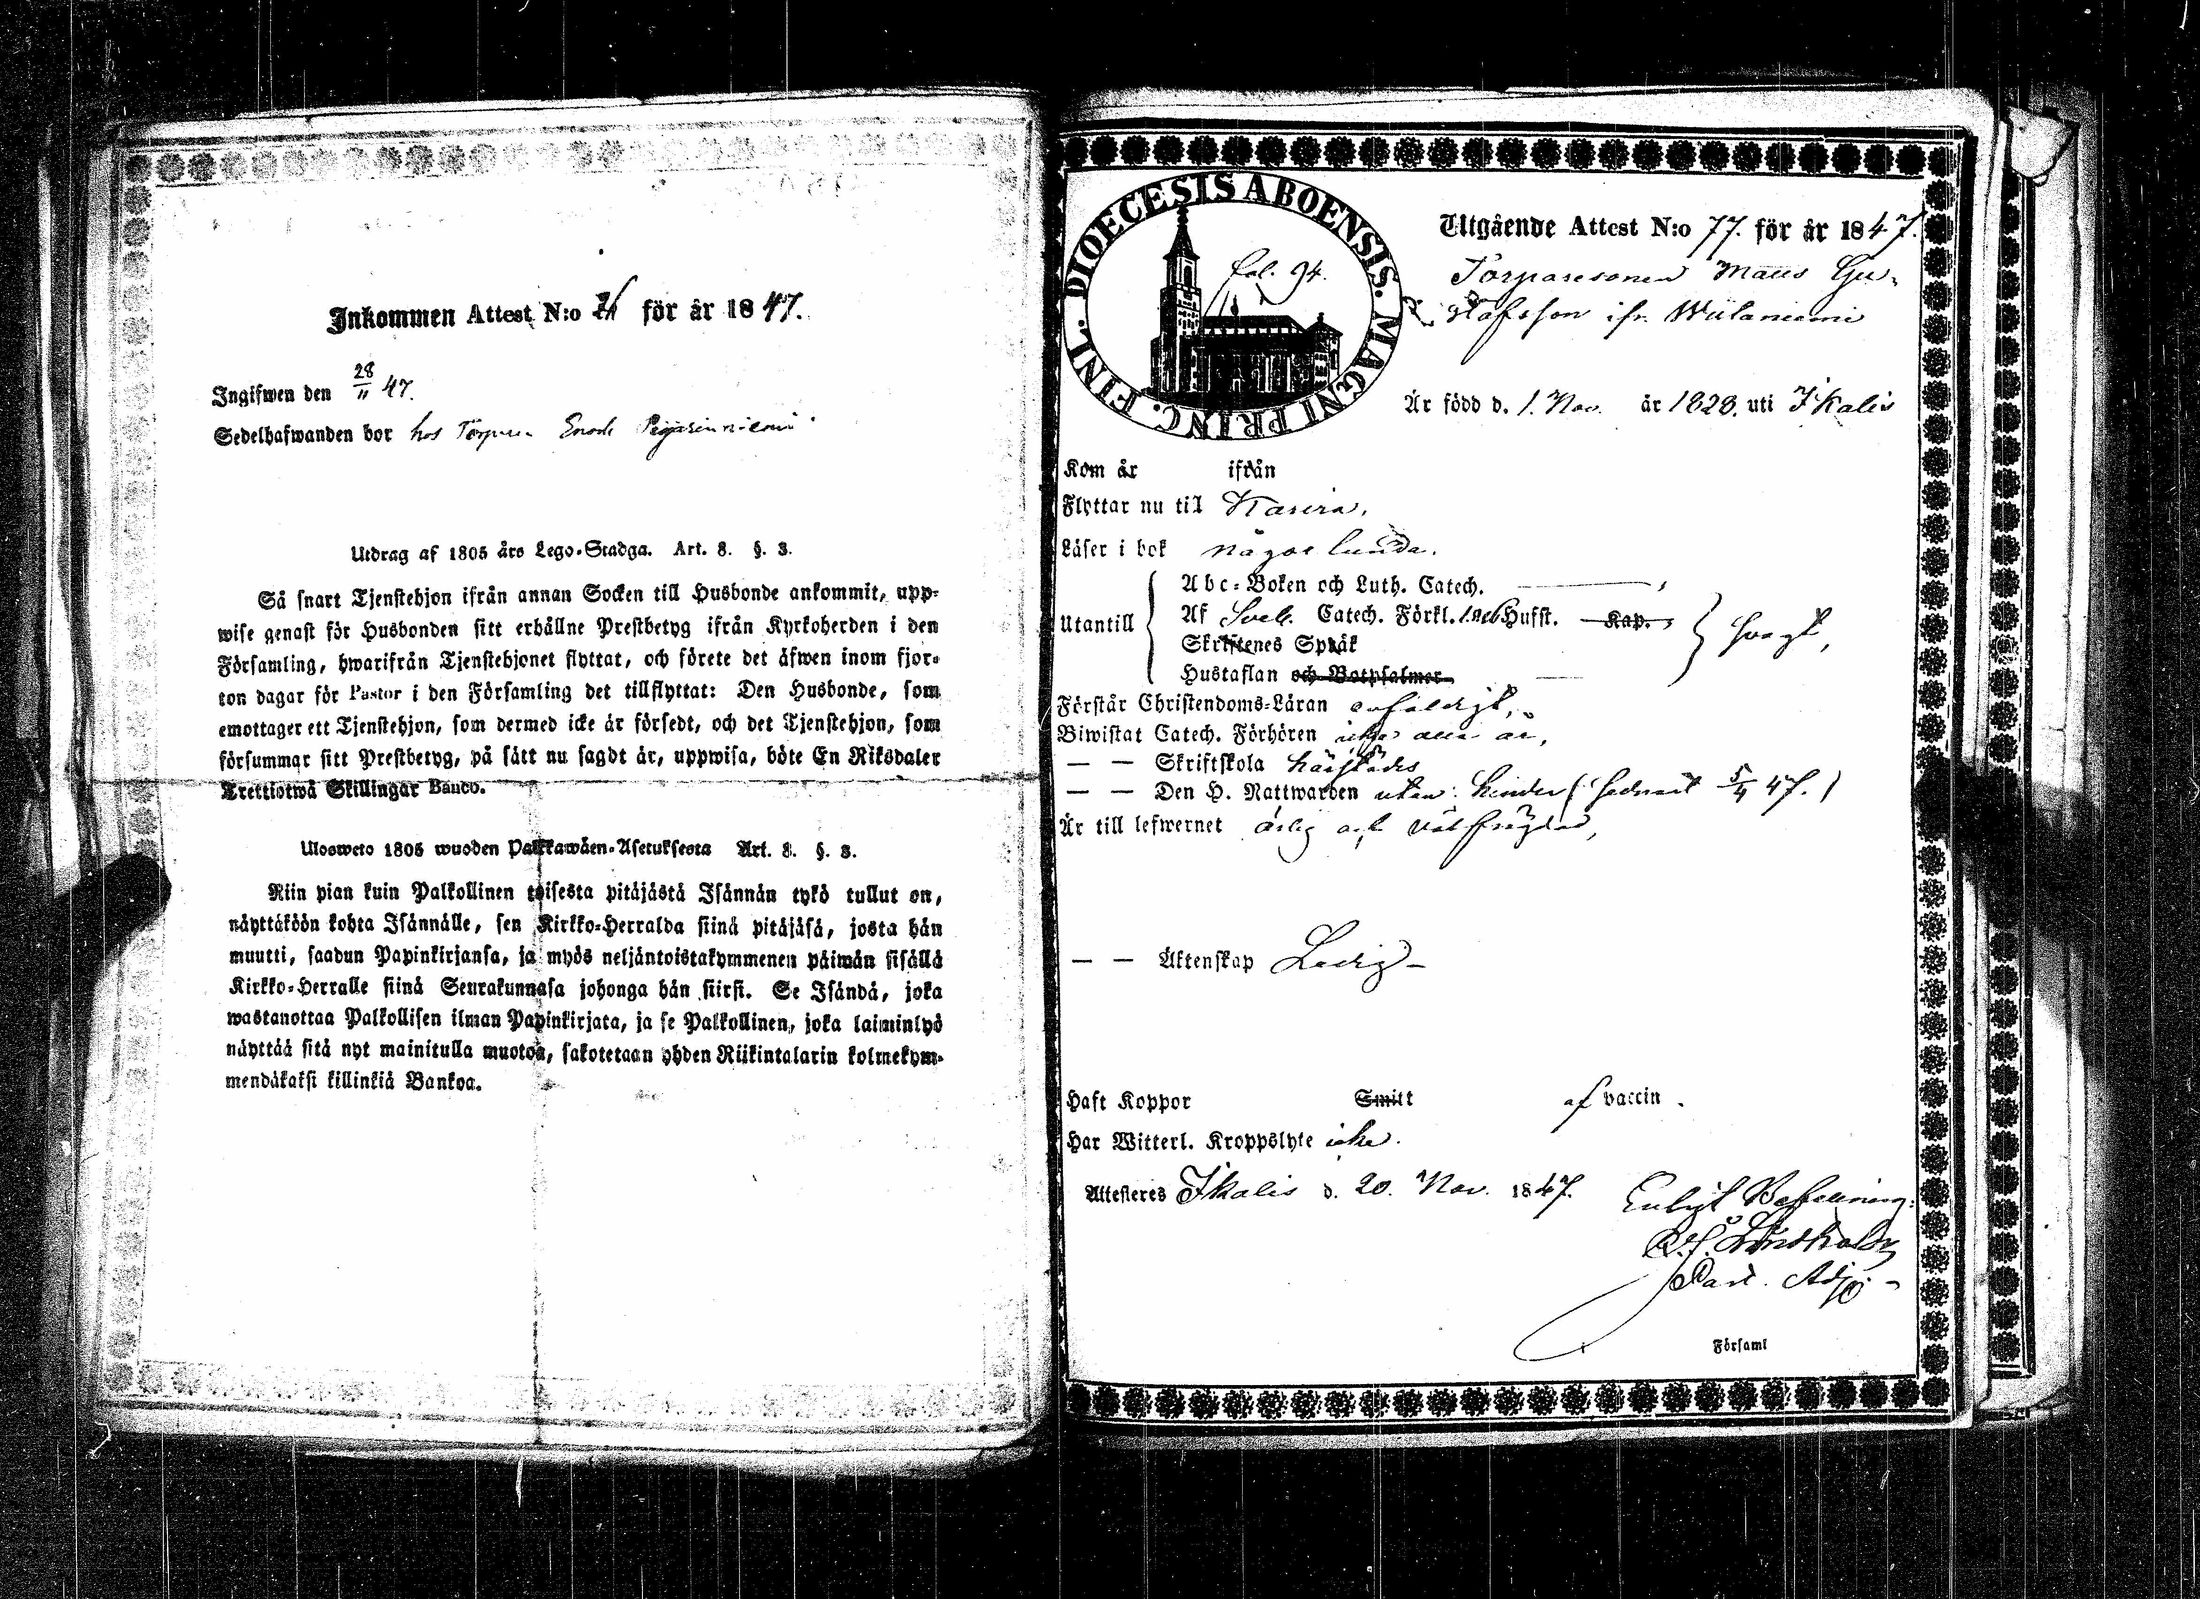 Inkommen Attest N:o för år 1847.
Ingifwen den 28/11 47.
Sedelhafwanden bor hos Torparen Enock
Utdrag af 1805 års Lego-Stadga. Art. 8. §. 3.
Så snart Tjenstehjon ifrån annan Socken till Husbonde ankommit, upp-
wise genast för Husbonden sitt erhållne Prestbetyg ifrån Kyrkoherden i den
Församling, hwarifrån Tjenstehjonet flyttat, och förete det äfwen inom fjor-
ton dagar för Pastor i den Församling det tillflyttat: Den Husbonde, som
emottager ett Tjenstehjon, som dermed icke är försedt, och det Tjenstehjon, som
försummar sitt Prestbetyg, på sätt nu sagdt är, uppwisa, böte En Riksdaler
Trettiotwå Skillingar Banco.
Ulosweto 1805 wuoden Palkkawäen-Asetuksesta Art. 8. §. 3.
Niin pian kuin Palkollinen toisesta pitäjästä Isännän tykö tullut on,
näyttäköön kohta Isännälle, sen Kirkko-Herralda siinä pitäjäsä, josta hän
muutti, saadun Papinkirjansa, ja myös neljäntoistakymmenen päiwän sisällä
Kirkko-Herralle siinä Seurakunnasa johonga hän siirsi. Se Isändä, joka
wastanottaa Palkollisen ilman Papinkirjata, ja se Palkollinen, joka laiminlyö
näyttää sitä nyt mainitulla muotoa, sakotetaan yhden Riikintalarin kolmekym-
mendäkaksi killinkiä Bankoa.
DIOECESIS ABOENSIS. MAGNI PRINC. FINL.
fol. 94.
Utgående Attest N:o 77. för år 1847.
Torparesonen Matts Gu-
stafsson ifr. Wiilaniemi
Är född d. 1. Nov. år 1828. uti Ikalis
Kom år ifrån
Flyttar nu til
Läser i bok någorlunda.
Utantill
Abc-Boken och Luth. Catech.
Af Sveb. Catech. Förkl. Hufst. Kap.
Skriftenes Språk
Hustaflan och Botpsalmer
svagt,
Förstår Christendoms-Läran enfaldigt,
Biwistat Catech. Förhören alla år,
— — Skriftskola härstädes
— — Den H. Nattwarden utan hinder (sednast 5/9 47.)
Är till lefwernet ärlig och välfrägdad,
— — Äktenskap Ledig
Haft Koppor Smitt af vaccin.
Har Witterl. Kroppslyte icke.
Attesteres Ikalis d. 20. Nov. 1847.
Enligt Befallning:
Lindholm
Past. Adj.
Församl